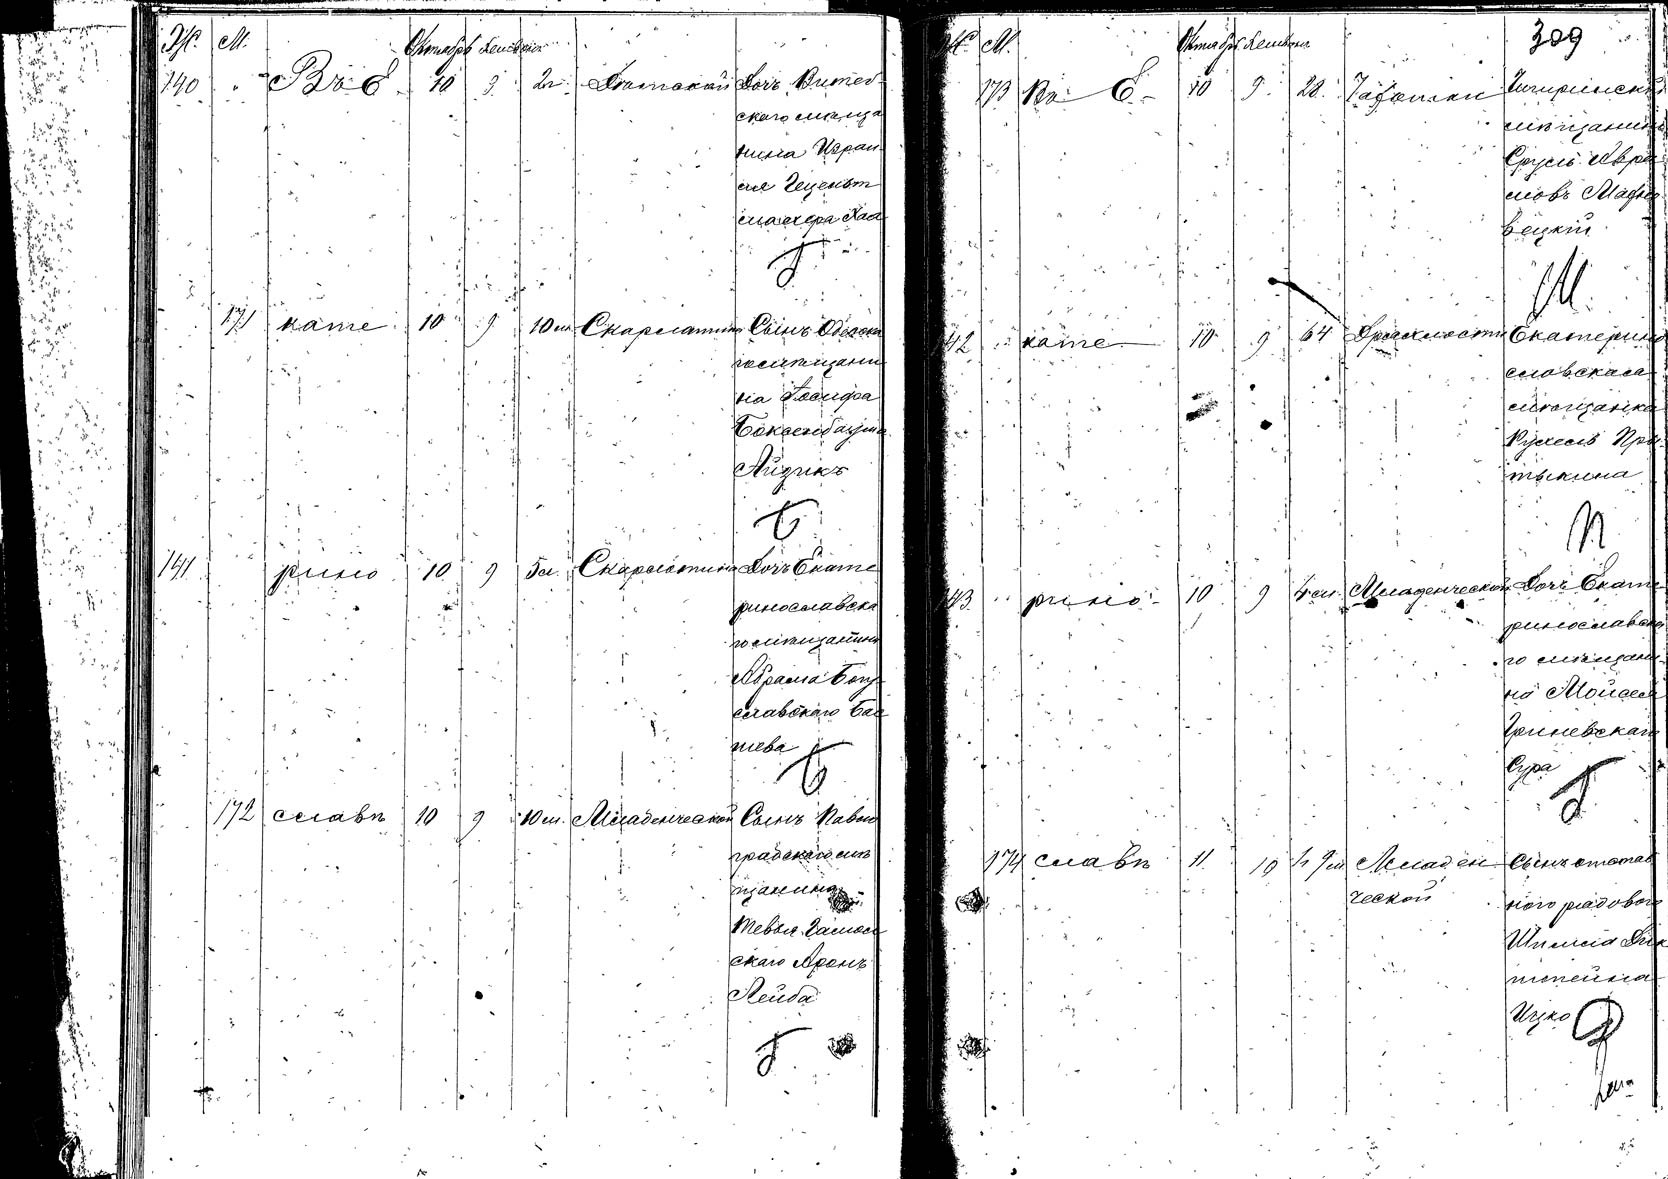 Ж. М. Октябрь
140 Въ Е 10 9 2 г. Дочь Витеб
скаго мѣща
нина Израи
ля
Хая
171 кате 10 9 10 м. Скарлатина Сынъ Одесска
го мѣщани
на Іосифа
Боксенбаума
Айзикъ
Б
141 рино 10 9 5 м. Скарлатина Дочь Екате
ринославска
го мѣщанина
Абрама Богу
славскаго Бас
шева
Б
172 славѣ 10 9 10 м. Младенческой Сынъ Павло
градскаго мѣ
щанина
Тевья
скаго Аронъ
Лейба
309
Ж. М. Октябрь
173 Въ Е 10 9 28 Чахотки Чигиринскій
мѣщанинъ
Сруль Авра
мовъ
вецкій
М
142 кате 10 9 64 Дряхлости Екатерино
славская
мѣщанка
Рухель При
тыкина
П
143 рино 10 9 4 м. Младенческой Дочь Екате
ринославска
го мѣщани
на Мойсея
Гриневскаго
Сура
Г
174 славѣ 11 10 Младен Сынъ отстав
ческой наго рядового
Шлиома
штейна
Ицко